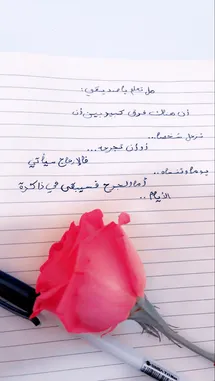 هل تعلم يا صديقي:
أن هناك فرق كبير بين أن
تزعل شخصا...
أو أن تجرحه...
فالازعاج سيأتي
يوما وتنساه..
أما الجرح فسيبقى في ذاكرة
الأيام..